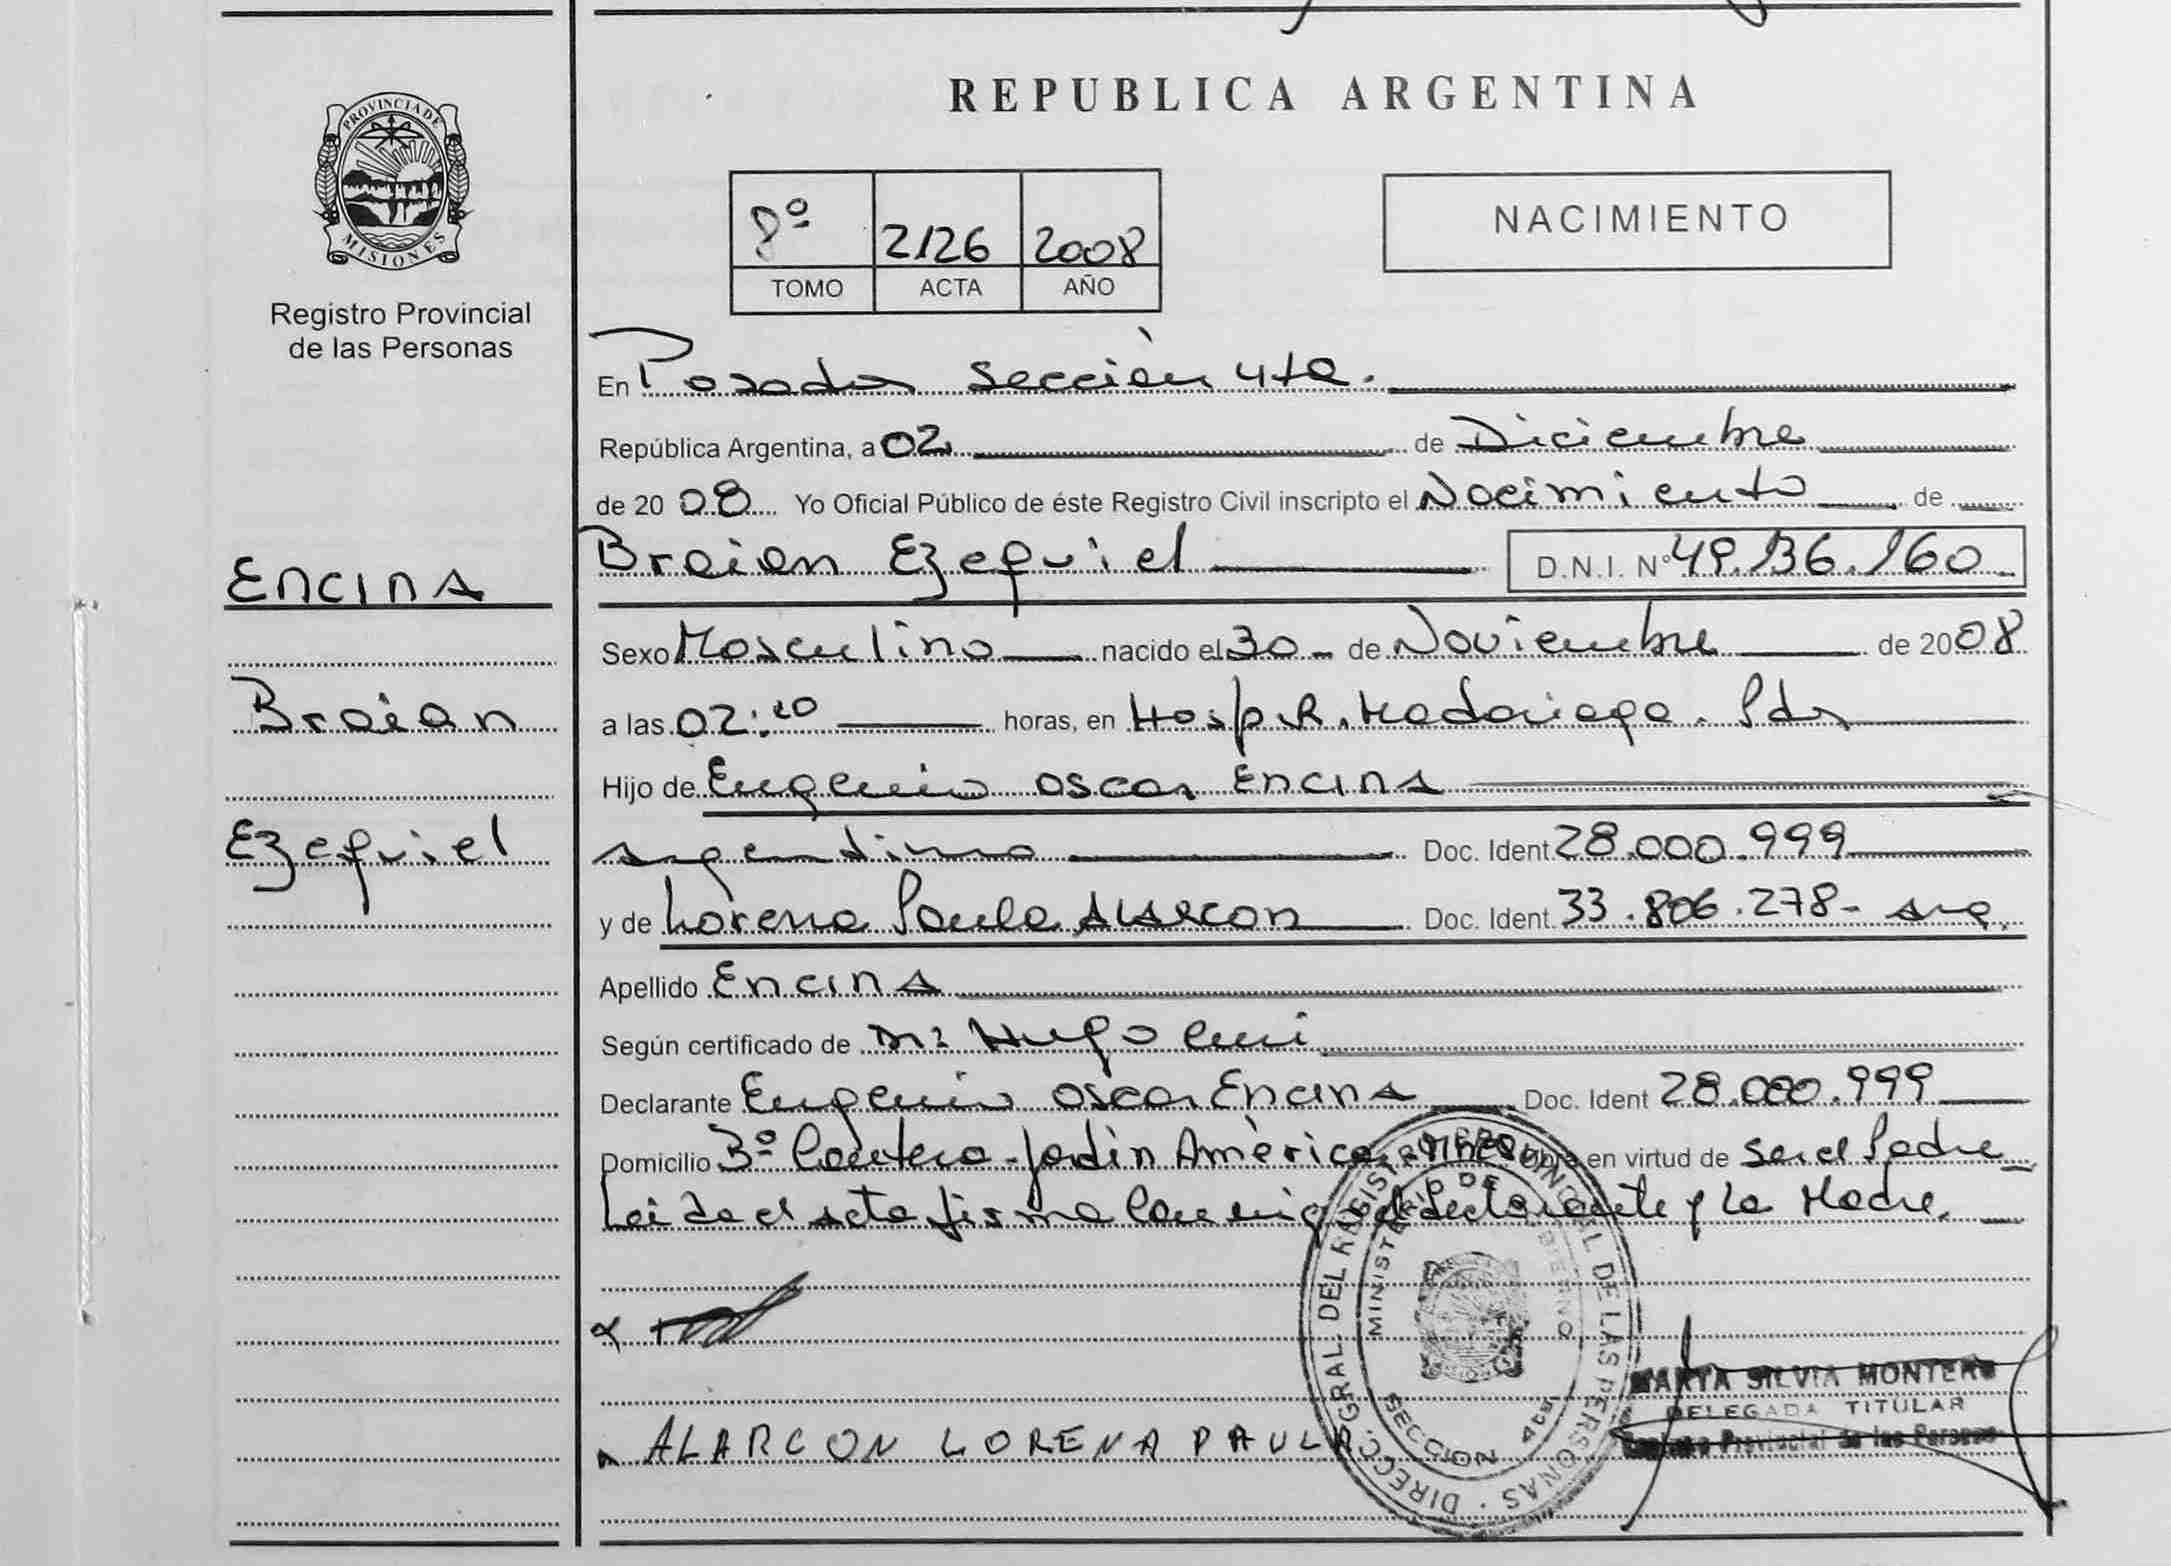 REPUBLICA ARGENTINA
PROVINCIA DE
MISIONES
Registro Provincial
de las Personas
8º 2126 2008
TOMO ACTA AÑO
NACIMIENTO
En Posadas Sección 4ta.
República Argentina, a 02 de Diciembre
de 2008 Yo Oficial Público de éste Registro Civil inscripto el Nacimiento de
Braian Ezequiel D.N.I. Nº 49.136.160
ENCINA
Sexo Masculino nacido el 30 de Noviembre de 2008
Braian
a las 02: horas, en Hosp. R. Madariaga. Pdas
Hijo de Eugenio Oscar ENCINA
Ezequiel
argentino Doc. Ident 28.000.999
y de Lorena Paula ALARCON Doc. Ident. 33.806.278- arg.
Apellido ENCINA
Según certificado de Hugo
Declarante Eugenio Oscar ENCINA Doc. Ident 28.000.999
Domicilio Bº Cantera - Jardín América Obra en virtud de ser el Padre
Leida el acta firma Conmigo el declarante y la Madre.
ALARCON LORENA PAULA
DIRECC. GRAL. DEL REGISTRO PROVINCIAL DE LAS PERSONAS
MINISTERIO DE GOBIERNO
SECCION 4ta
MARTA SILVIA MONTERO
DELEGADA TITULAR
Registro Provincial de las Personas